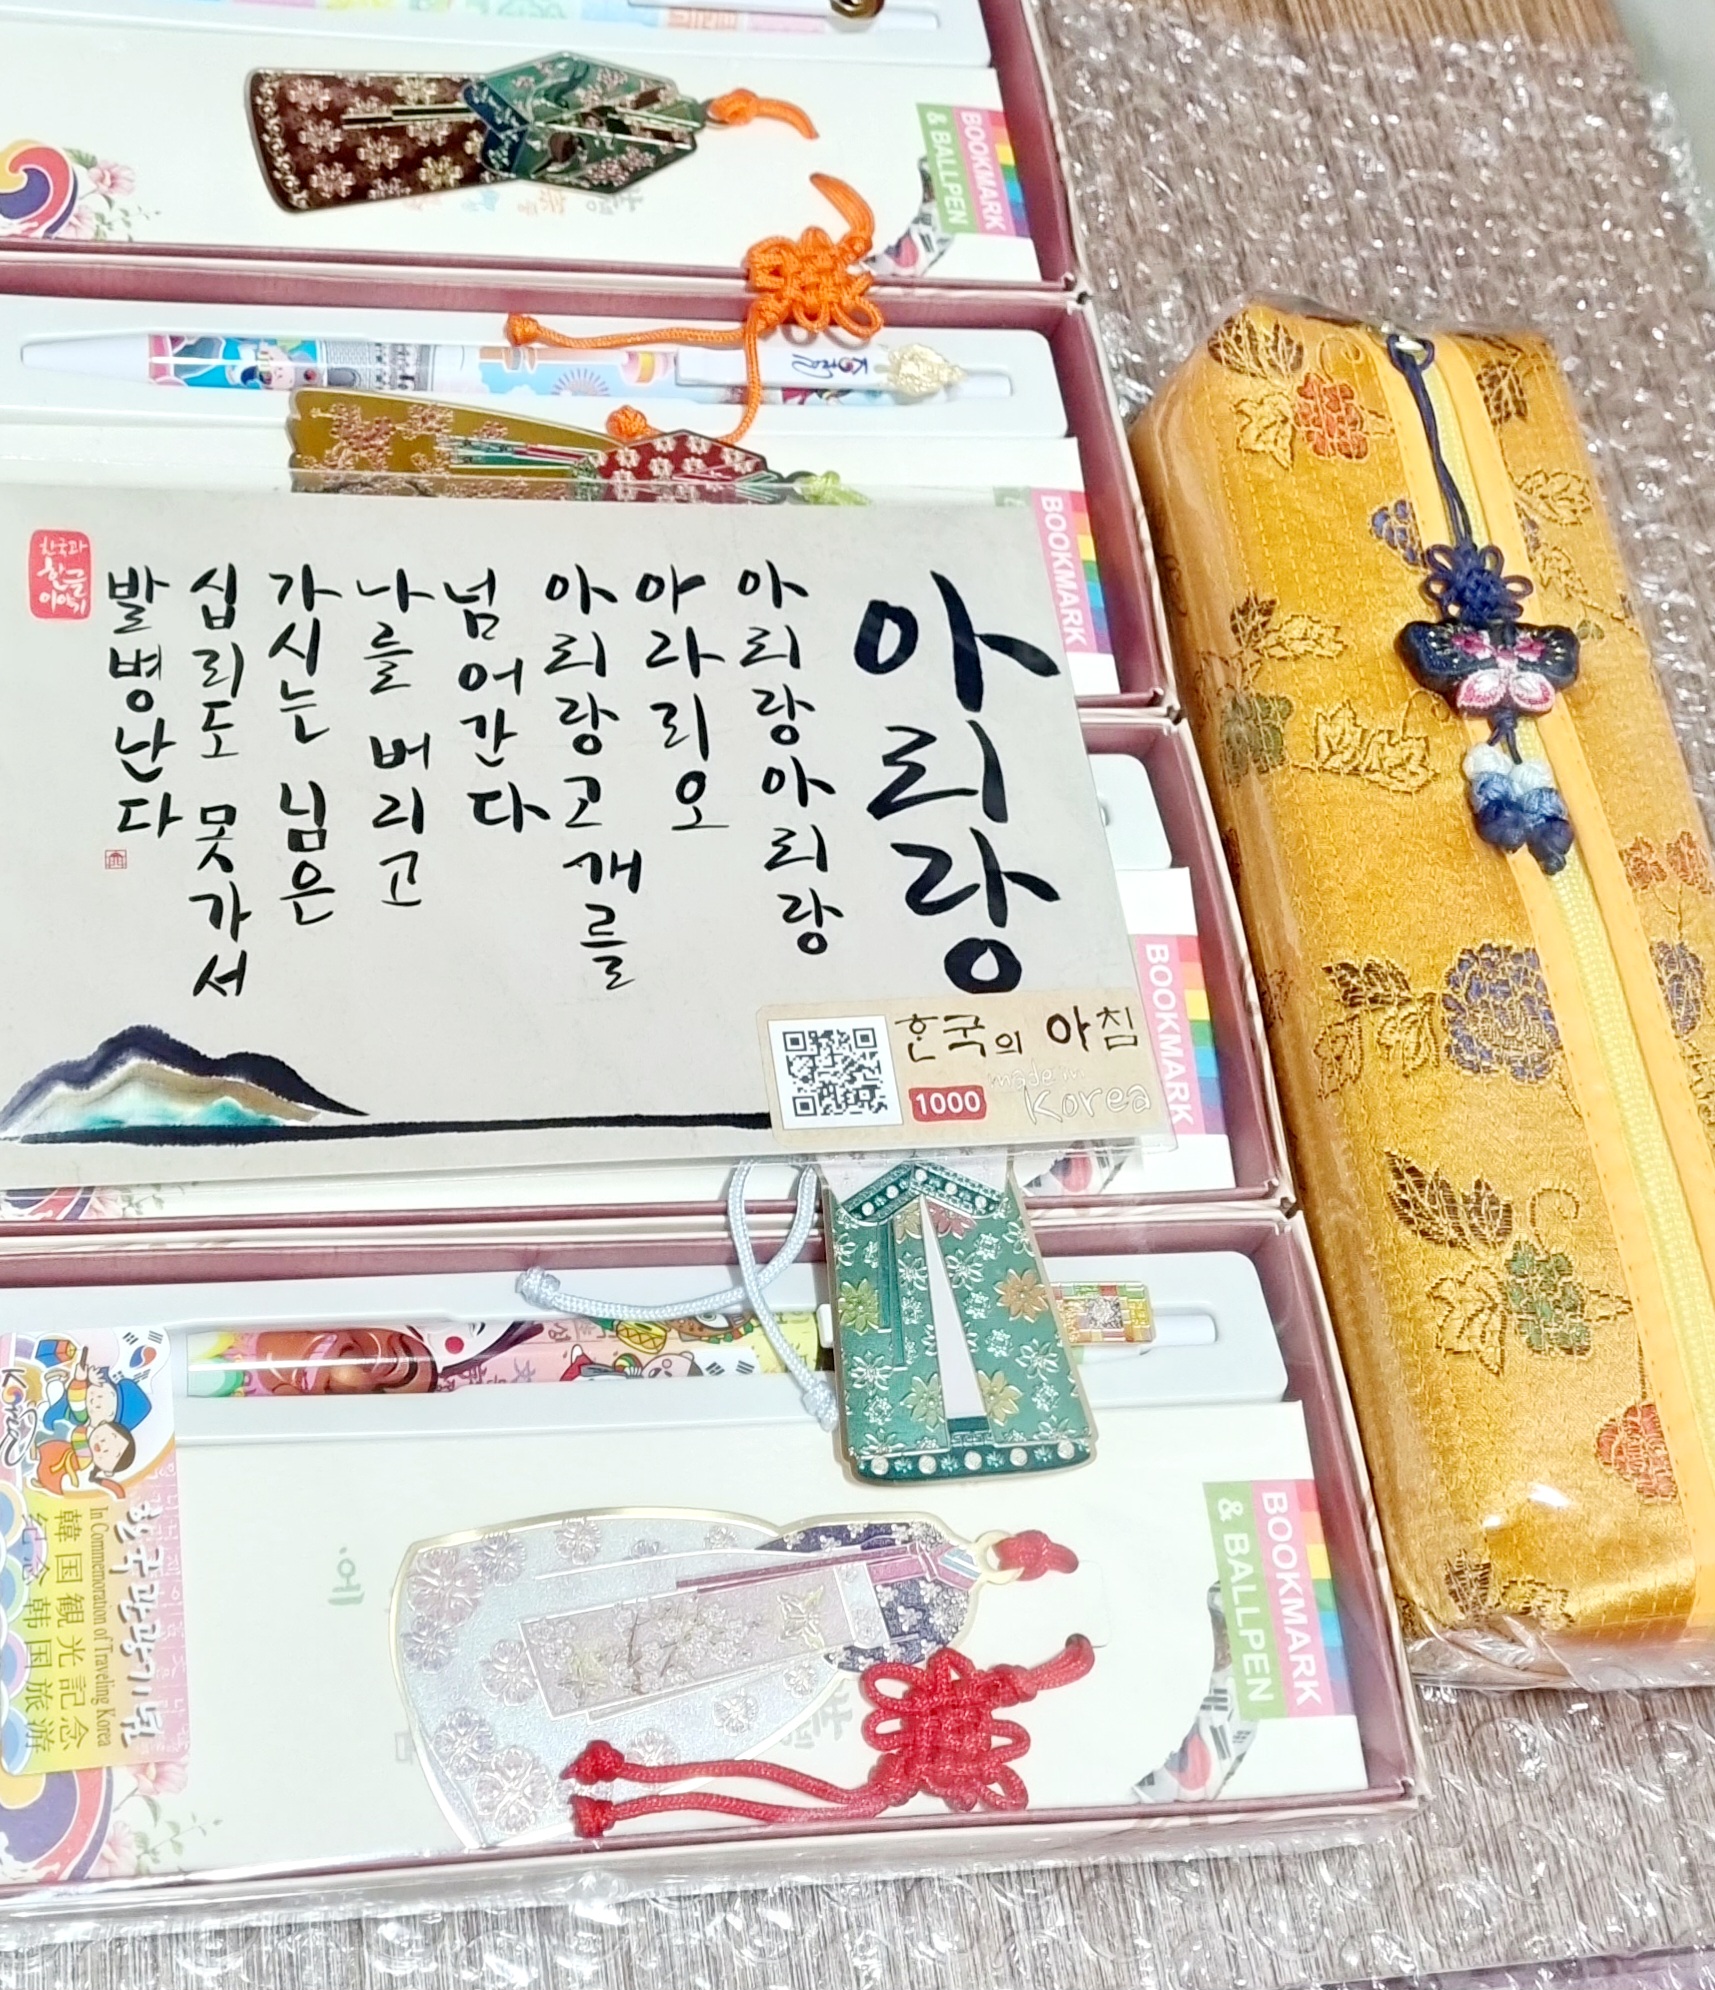 BOOKMARK
& BALLPEN
BOOKMARK
아리랑
아리랑아리랑
아라리오
아리랑고개를
넘어간다
나를 버리고
가시는 님은
십리도 못가서
발병난다
한국과
한글
이야기
한국의 아침
1000
made in
Korea
BOOKMARK
한국관광기념
In Commemoration of Traveling Korea
韓国観光記念
纪念韩国旅游
BOOKMARK
& BALLPEN